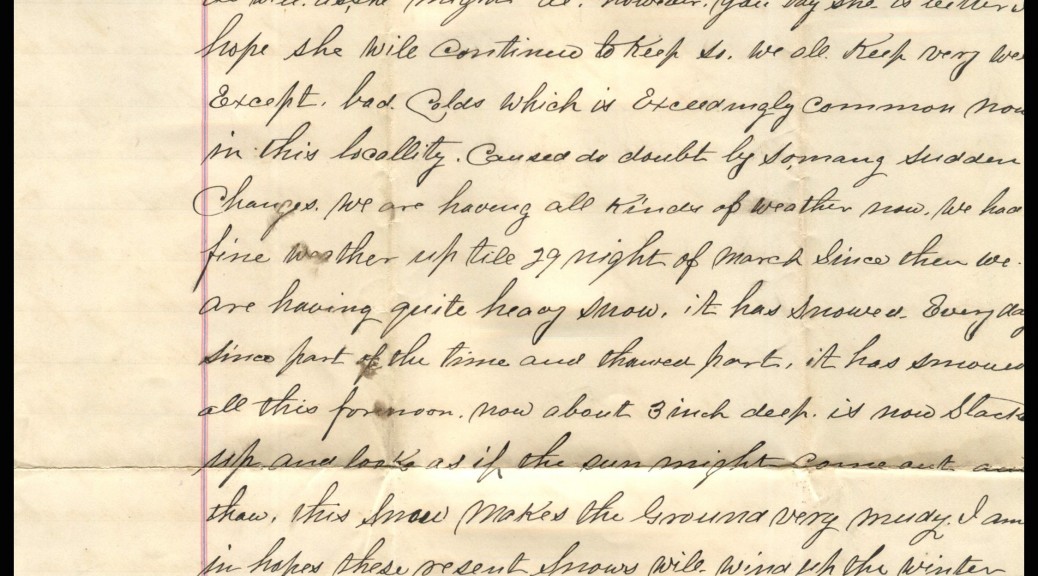 as well as she might do. however, you say she is better I
hope she will continue to keep so. we all keep very we
Except. bad. Colds which is Exceedingly common now
in this locallity. Caused do doubt by so many sudden
Changes. we are having all kinds of weather now. we had
fine weather up till 29 night of March Since then we
are having quite heavy snow. it has snowed Every day
since part of the time and thawed part. it has snowed
all this fornoon. now about 3 inch deep. is now Slack
up and looks as if the sun might come out an
thaw. this Snow makes the Ground very mudy. I am
in hopes these resent Snows will wind up the winter